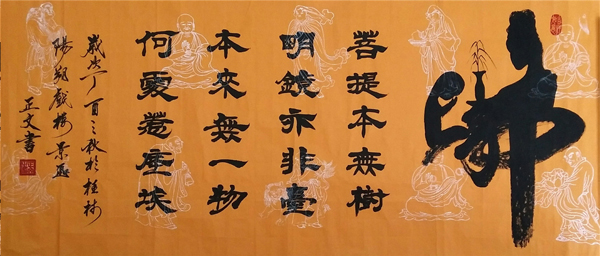 佛
菩提本無樹
明鏡亦非臺
本來無一物
何處惹塵埃
歲次丁酉之秋於桂林
陽朔戲樓景區
正文書